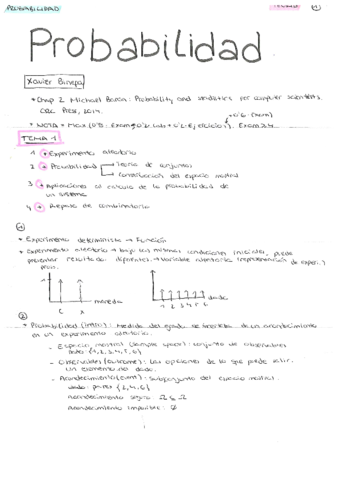 PROBABILIDAD
Probabilidad
Xavier
* Chap 2. Michael Baron: Probability and statistics for computer scientists.
CRC Press, 2014.
TEMA 1
1 * Experimento aleatorio
2 * Probabilidad
Teoría de conjuntos
Construcción del espacio muestral
3 * Aplicaciones al cálculo de la probabilidad de
un sistema
4 * Repaso de combinatoria
①
* Experimento determinista → Función
* Experimento aleatorio → bajo las mismas condiciones iniciales, puede
presentar resultados diferentes → Variable aleatoria (representación de exper.)
moneda
dado
C
1 2 3 4 5 6
②
* Probabilidad (intro): medida del grado de de un acontecimiento
en un experimento aleatorio.
- Espacio muestral (sample space): conjunto de observables
dado: {1, 2, 3, 4, 5, 6}
- Observables (outcome): las opciones de lo que puede salir.
un elemento del dado.
- Acontecimiento (event): subconjunto del espacio muestral.
dado: pares {2, 4, 6}
Acontecimiento seguro: Ω ⊆ Ω
Acontecimiento imposible: ∅